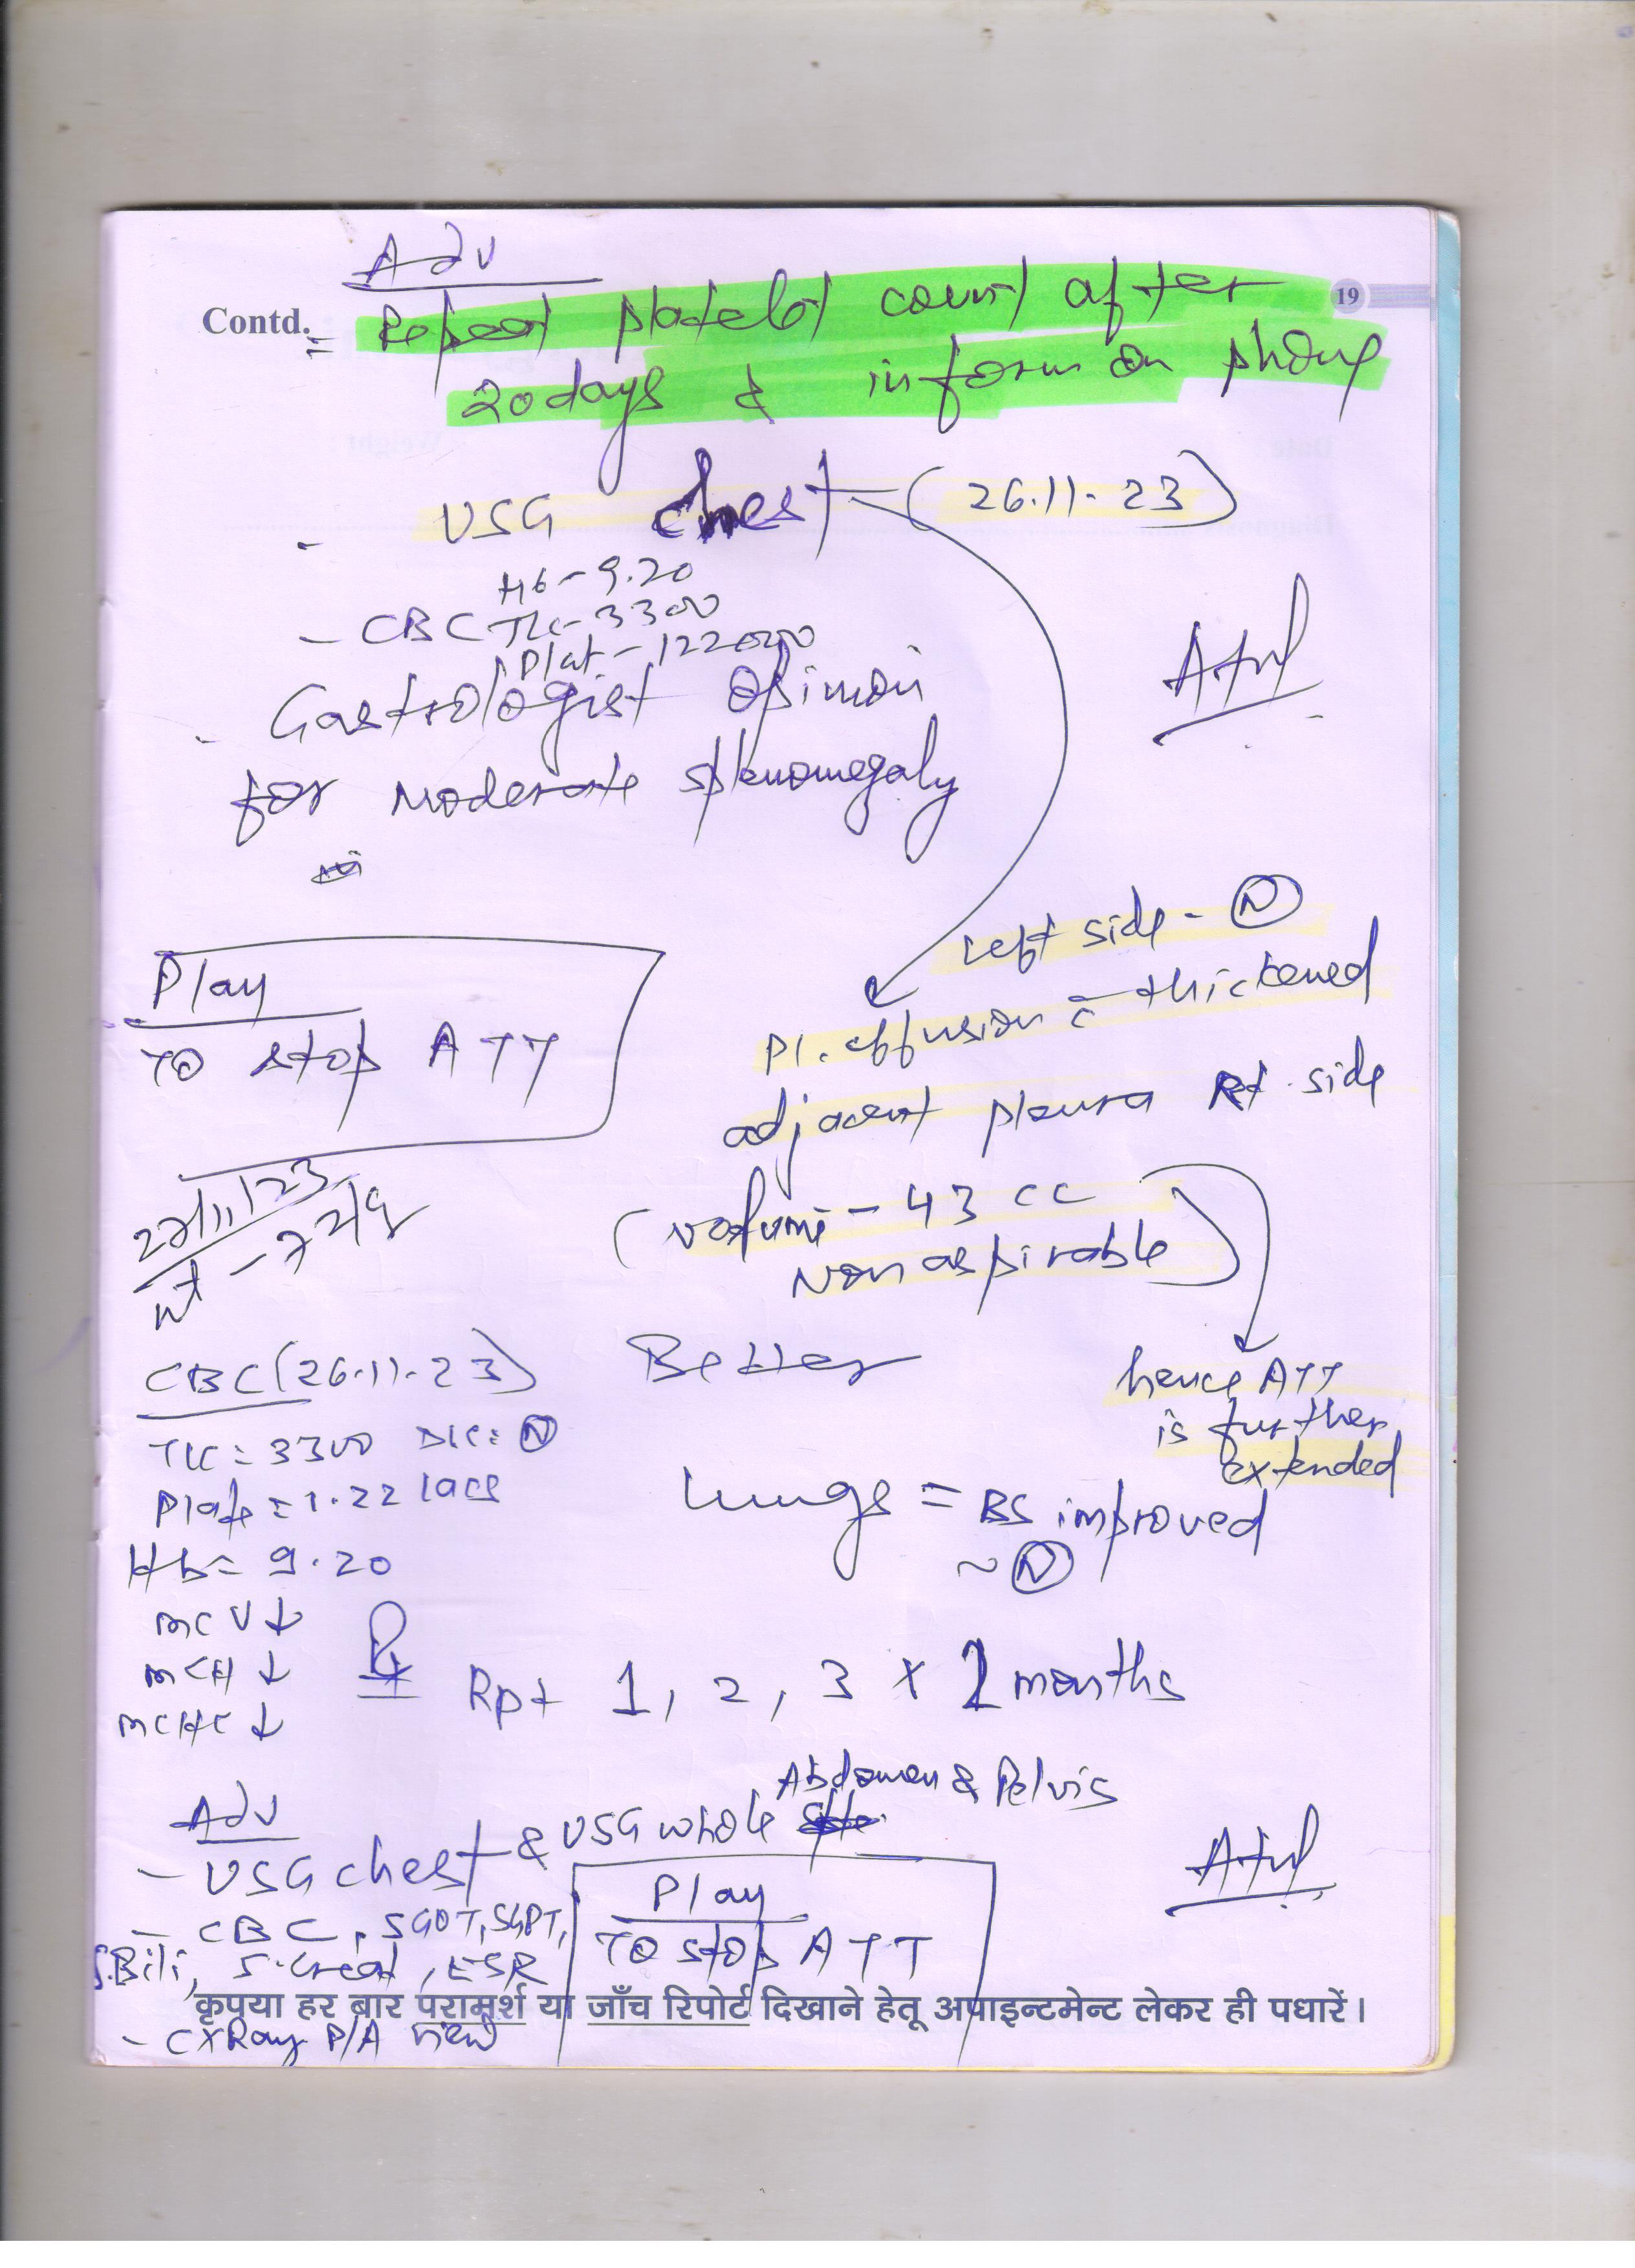 Adv
19
Contd. = Repeat platelet count after
20 days & inform on phone
- USG chest - (26.11.23)
Hb - 9.20
- CBC TLC - 3300
Plat - 122000
- Gastrologist opinion
for Moderate splenomegaly
Atul
Left side - (N)
Play
To stop ATT
Pl. effusion c thickened
adjacent pleura Rt side
(volume - 43 cc
Non aspirable)
27/11/23
wt -
CBC (26.11.23)
Better
hence ATT
is further
extended
TLC = 3300 DLC = (N)
Plate = 1.22 lacs
Lungs = BS improved
~ (N)
Hb = 9.20
MCV ↓
MCH ↓
MCHC ↓
Rx
Rpt 1, 2, 3 x 2 months
Adv
Abdomen & Pelvis
- USG chest & USG whole
Atul
Play
To stop ATT
- CBC, SGOT, SGPT,
S.Bili, S.Creat, ESR
कृपया हर बार परामर्श या जाँच रिपोर्ट दिखाने हेतू अपाइन्टमेन्ट लेकर ही पधारें।
- CXRay P/A view